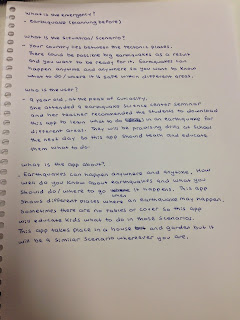 What is the emergency?
- Earthquake (planning before)
What is the situation/scenario?
- Your country lies between the tectonic plates.
There could be possible big earthquakes as a result
and you want to be ready for it. Earthquakes can
happen anywhere and anytime so you want to know
what to do / where it is safe within different areas.
Who is the user?
- 9 year old, at the peak of curiosity.
She attended a earthquake science center seminar
and her teacher recommended the students to download
this app to learn what to do in an earthquake for
different areas. They will be practicing drills at school
the next day. So this app should teach and educate
them what to do.
What is the app about?
- Earthquakes can happen anywhere and anytime. How
well do you know about earthquakes and what you
should do / where to go when it happens. This app
shows different places where an earthquake may happen.
Sometimes there are no tables or cover so this app
will educate kids what to do in those scenarios.
This app takes place in a house and garden but it
will be a similar scenario wherever you are.